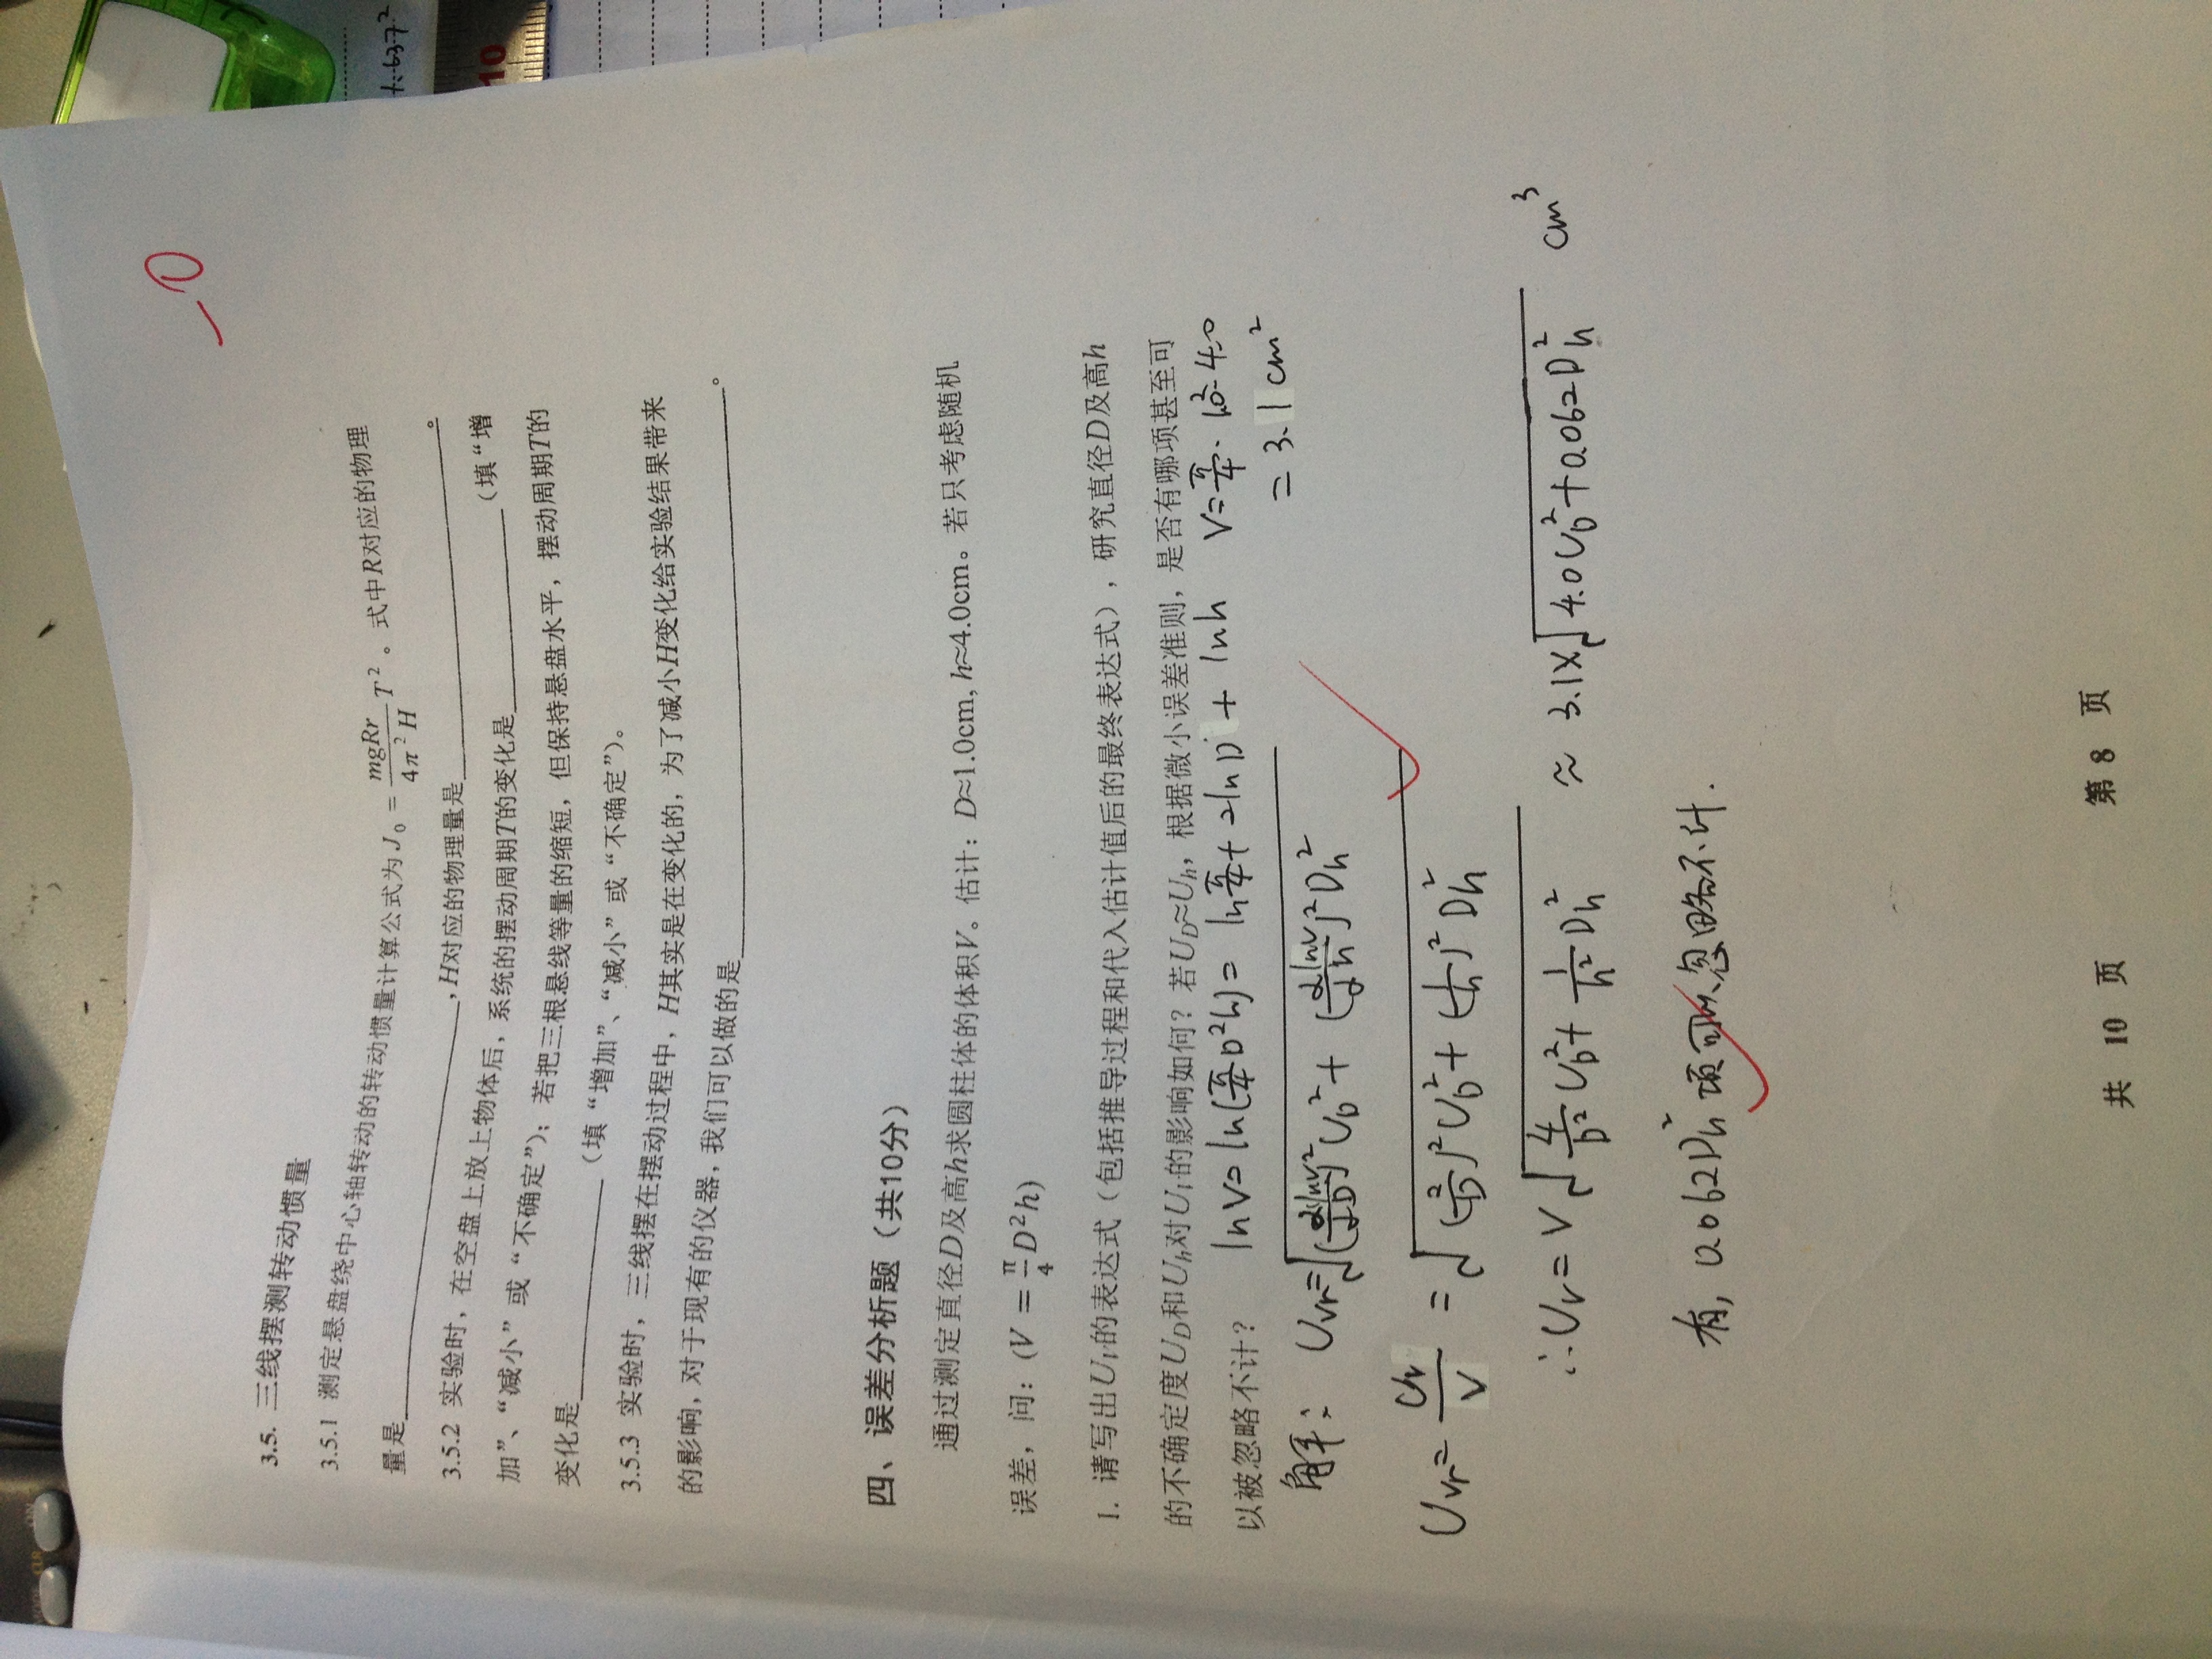 MODE CLR ON
-0
3.5. 三线摆测转动惯量
3.5.1 测定悬盘绕中心轴转动的转动惯量计算公式为 J₀ = mgRr/4π²H T² 。式中R对应的物理
量是____________________, H对应的物理量是____________________。
3.5.2 实验时，在空盘上放上物体后，系统的摆动周期T的变化是__________（填“增
加”、“减小”或“不确定”）；若把三根悬线等量的缩短，但保持悬盘水平，摆动周期T的
变化是__________（填“增加”、“减小”或“不确定”）。
3.5.3 实验时，三线摆在摆动过程中，H其实是在变化的，为了减小H变化给实验结果带来
的影响，对于现有的仪器，我们可以做的是______________________________。
10
四、误差分析题（共10分）
通过测定直径D及高h求圆柱体的体积V。估计：D≈1.0cm, h≈4.0cm。若只考虑随机
误差，问：(V = π/4 D²h)
1. 请写出U_V的表达式（包括推导过程和代入估计值后的最终表达式），研究直径D及高h
的不确定度U_D和U_h对U_V的影响如何？若U_D≈U_h，根据微小误差准则，是否有哪项甚至可
以被忽略不计？
lnV = ln(π/4 D²h) = ln π/4 + 2lnD + lnh
V = π/4 · 1.0² · 4.0
= 3.1 cm²
解： U_Vr = √((∂lnV/∂D)² U_D² + (∂lnV/∂h)² D_h²)
U_Vr = U_V/V = √((2/D)² U_D² + (1/h)² D_h²)
∴U_V = V√(4/D² U_D² + 1/h² D_h²) ≈ 3.1×√(4.0U_D² + 0.062D_h²) cm³
有, 0.062D_h² 项可以忽略不计.
共 10 页 第 8 页